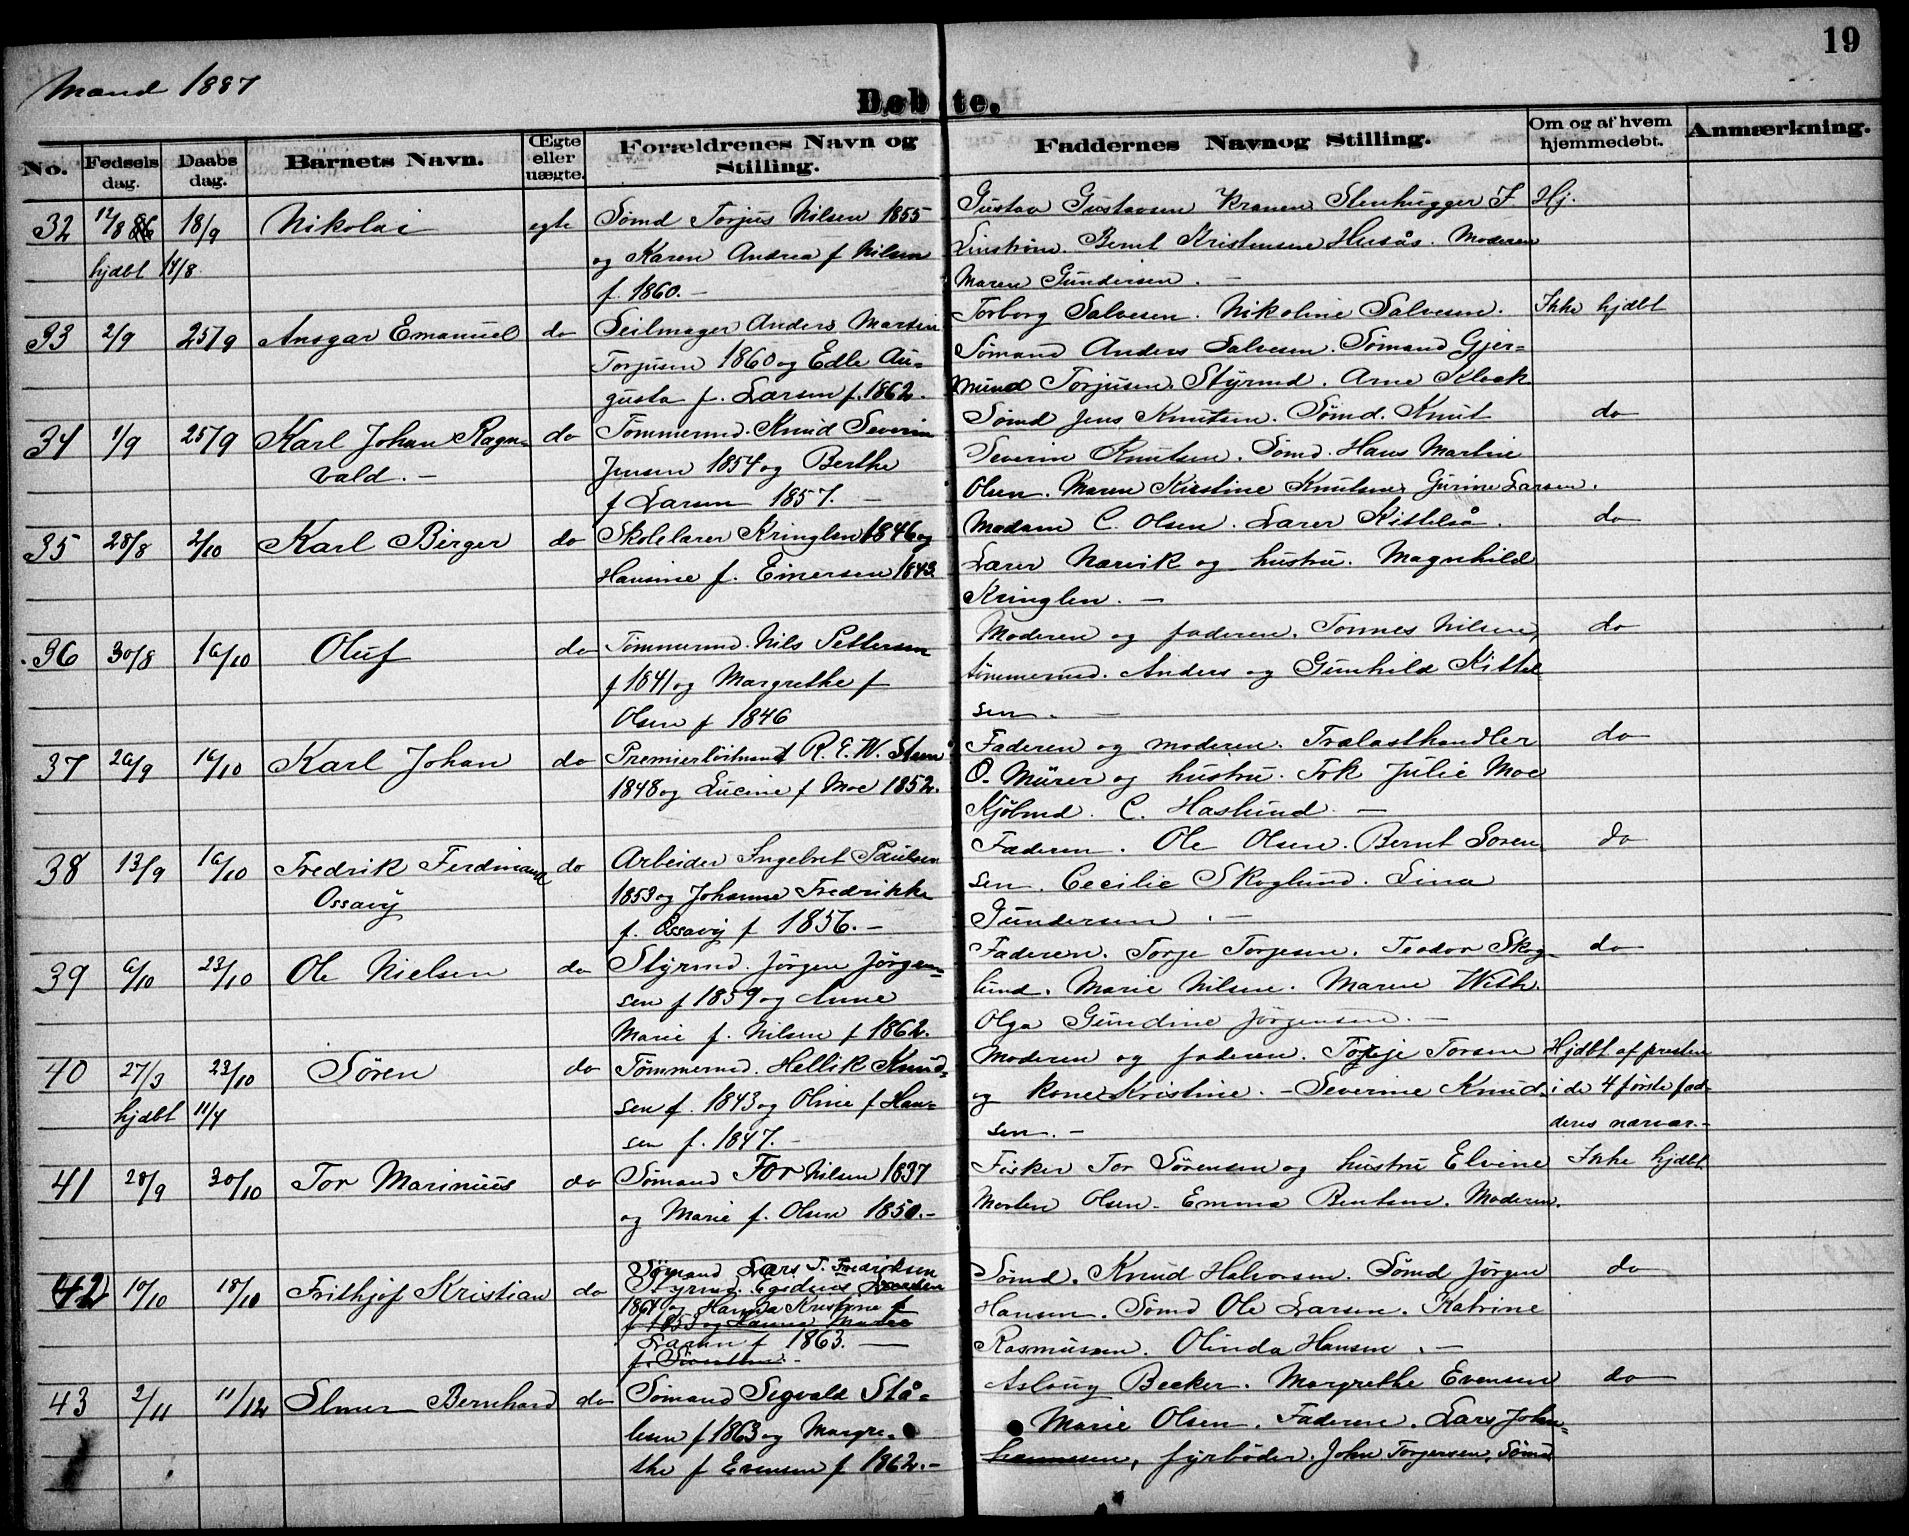 19
Mænd 1887
Døbte.
No.
Fødsels dag.
Daabs dag.
Barnets Navn.
Œgte eller uægte.
Forældrenes Navn og Stilling.
Faddernes Navn og Stilling.
Om og af hvem hjemmedøbt.
Anmærkning.
32 12/8 86 18/9 Nikolai egte Sømd Torjus Nilsen 1855 Gustav Gustavsen Kranen Stenhugger F Hj.
hjdbt 14/8. og Karen Andrea f Nilsen Linstrøm. Bernt Kristensen Husås. Moderen
f. 1860.— Maren Gundersen. —
33 2/9 25/9 Ansgar Emanuel do Seilmager Anders Martin Torborg Salvesen. Nikoline Salvesen. Ikke hjdbt
Torjusen 1860 og Edle Au- Sømand Anders Salvesen. Sømand Gjer-
gusta f. Larsen f. 1862. mund Torjusen. Styrmd. Arne Klock
34 1/9 25/9 Karl Johan Ragn- do Tømmermd. Knud Severin Sømd Jens Knutsen. Sømd. Knut do
vald. — Jensen 1854 og Berthe Severin Knutsen. Sømd. Hans Martin
f Larsen 1857. — Olsen. Maren Kirstine Knutsen. Gurine Larsen.
35 28/8 2/10 Karl Birger do Skolelærer Kringlen 1846 og Madam C. Olsen. Lærer Kittelså. do
Hansine f. Einersen 1843 Lærer Narvik og hustru. Magnhild
Kringlen. —
36 30/8 16/10 Oluf do Tømmermd. Nils Pettersen Moderen og faderen. Tønnes Nilsen, do
f 1841 og Margrethe f tømmermd. Anders og Gunhild Kittel
Olsen f 1846 sen. —
37 26/9 16/10 Karl Johan do Premierløitnant R. E. W. Steen Faderen og moderen. Trælasthandler do
1848 og Lucine f Moe 1852. O. Mürer og hustru. Frk Julie Moe
Kjøbmd. C. Haslund. —
38 13/9 16/10 Fredrik Ferdinand do Arbeider Ingebret Paulsen Faderen. Ole Olsen. Bernt Soren do
Ossavy 1853 og Johanne Fredrikke sen. Cecilie Skoglund. Lina
f. Ossavy f 1856.— Gundersen. —
39 6/10 23/10 Ole Nielsen do Styrmd. Jørgen Jørgen- Faderen. Torje Torjesen. Teodor Skog- do
sen f 1859 og Anne lund. Marie Nilsen. Maren With.
Marie f. Nilsen f 1862. Olga Gundine Jørgensen. —
40 27/3 23/10 Søren do Tømmermd. Hellik Knud- Moderen og faderen. Torje Torsen Hjdbt af presten
hjdbt 11/4 sen f. 1843 og Oline f Han- og kone Kristine. — Severine Knud- i de 4 første fad-
sen f. 1847.— sen.— deres nærvær.—
41 28/9 30/10 Tor Marinius do Sømand Tor Nilsen 1837 Fisker Tor Sørensen og hustru Elvine Ikke hjdbt
og Marie f. Olsen 1850.— Morten Olsen. Emma Berntsen. Moderen.
42 10/10 18/10 Frithjof Kristian do Sømand Lars T. Fredriksen Sømd. Knud Halvorsen. Sømd Jørgen do
Styrmd. Egidius
1861 og Hanna Kristine f Hansen. Sømd Ole Larsen. Katrine
Larsen f 1863. — Rasmussen. Olinda Hansen. —
43 2/11 11/12 Elmer Bernhard do Sømand Segvald Stå- Aslaug Becker. Margrethe Evensen do
lesen f 1863 og Margre- Marie Olsen. Faderen. Lars Johan-
the f Evensen f 1862.— hannesen, fyrbøder. John Torjersen, Sømd.